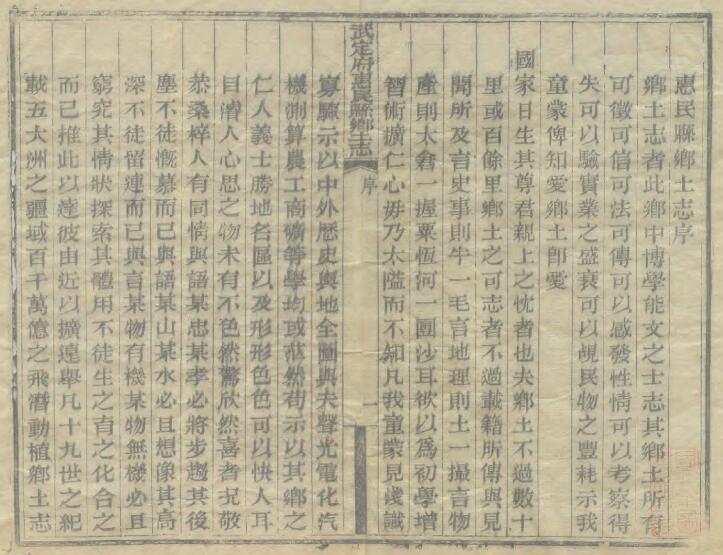 惠民縣鄉土志序
鄉土志者此鄉中博學能文之士志其鄉土所有
可徵可信可法可傳可以感發性情可以考察得
失可以驗實業之盛衰可以覘民物之豐耗示我
童蒙俾知愛鄉土卽愛
國家日生其尊君親上之忱者也夫鄉土不過數十
里或百餘里鄉土之可志者不過載籍所傳與見
聞所及言史事則牛一毛言地理則土一撮言物
產則太倉一握粟恆河一團沙耳欲以爲初學增
智術擴仁心毋乃太隘而不知凡我童蒙見淺識
武定府惠民縣鄉土志
序
一
寡驟示以中外歷史輿地全圖與夫聲光電化汽
機測算農工商礦等學均或茫然苟示以其鄉之
仁人義士勝地名區以及形形色色可以快人耳
目濬人心思之物未有不色然驚欣然喜者況敬
恭桑梓人有同情與語某忠某孝必將步趨其後
塵不徒慨慕而已與語某山某水必且想像其高
深不徒留連而已與言某物有機某物無機必且
窮究其情狀探索其體用不徒生之者之化合之
而已推此以達彼由近以擴遠舉凡十九世之紀
載五大洲之疆域百千萬億之飛潛動植鄉土志